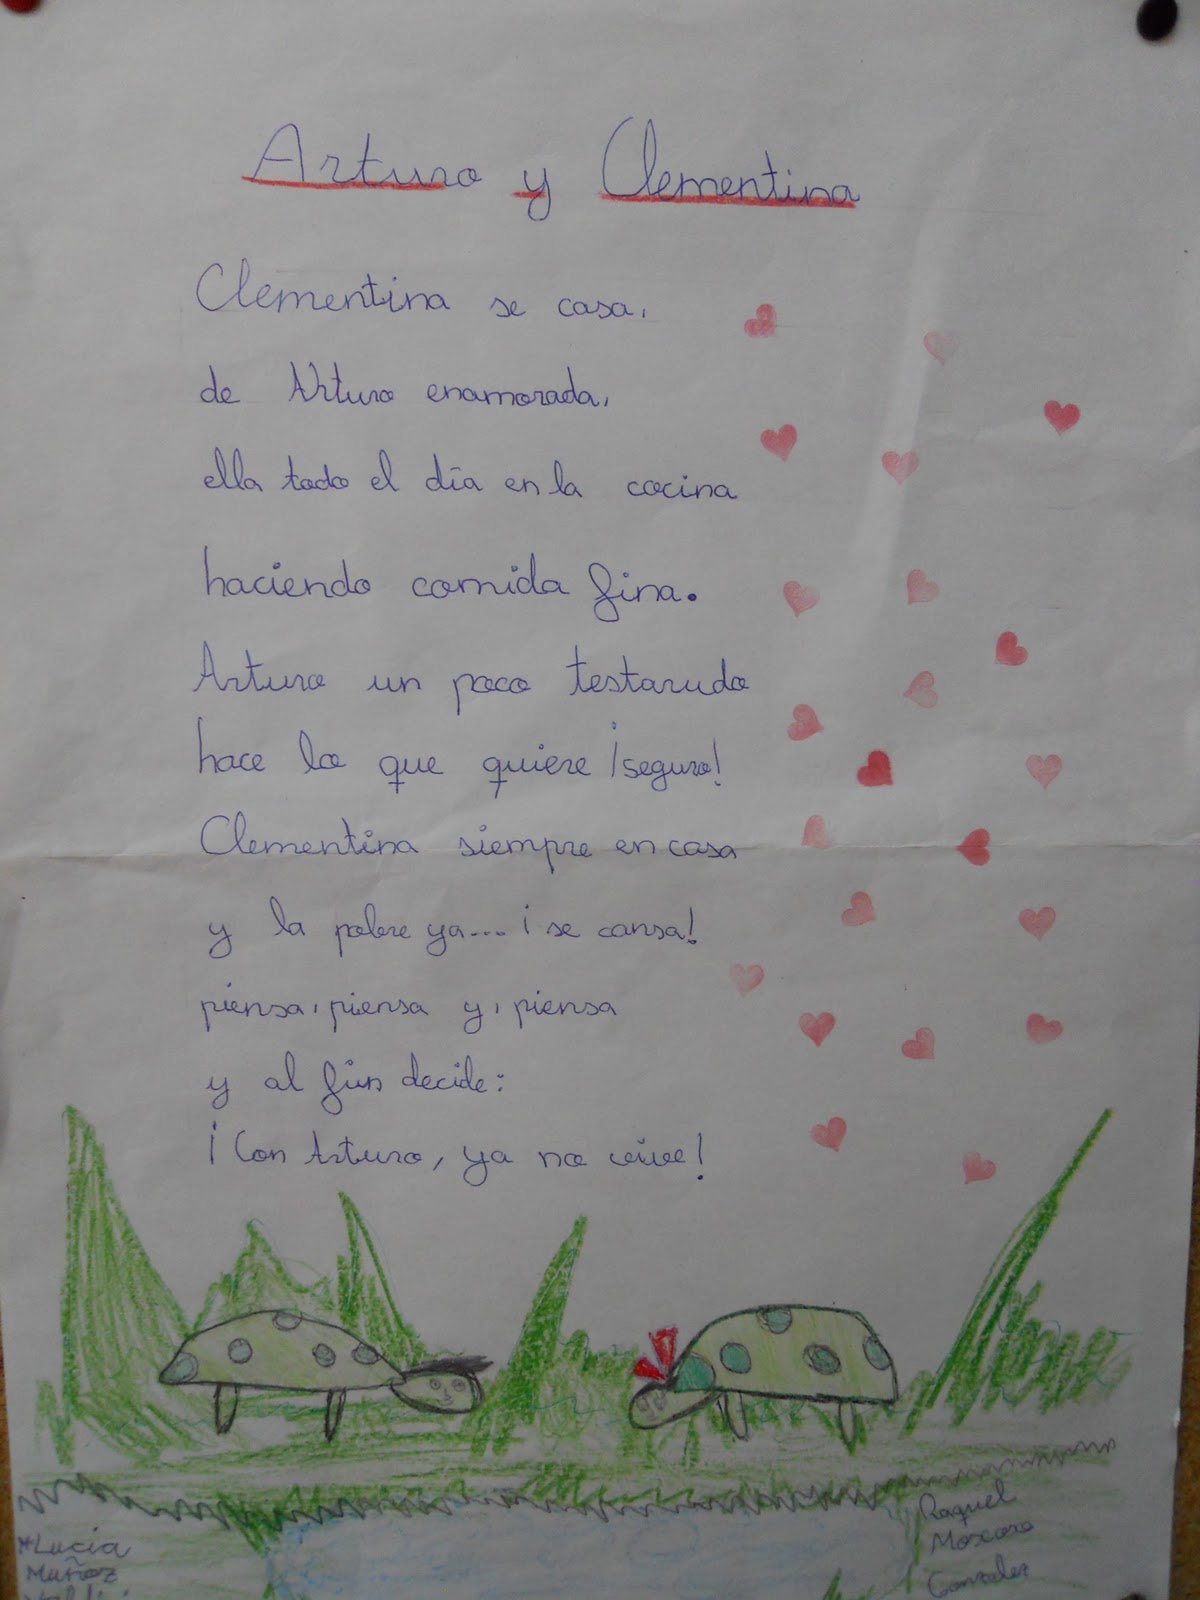 Arturo y Clementina
Clementina se casa,
de Arturo enamorada,
ella todo el día en la cocina
haciendo comida fina.
Arturo un poco testarudo
hace lo que quiere ¡seguro!
Clementina siempre en casa
y la pobre ya... ¡se cansa!
piensa, piensa y, piensa
y al fin decide:
¡Con Arturo, ya no vive!
*Lucía
Muñoz
Raquel
Moscoro
Gonzalez